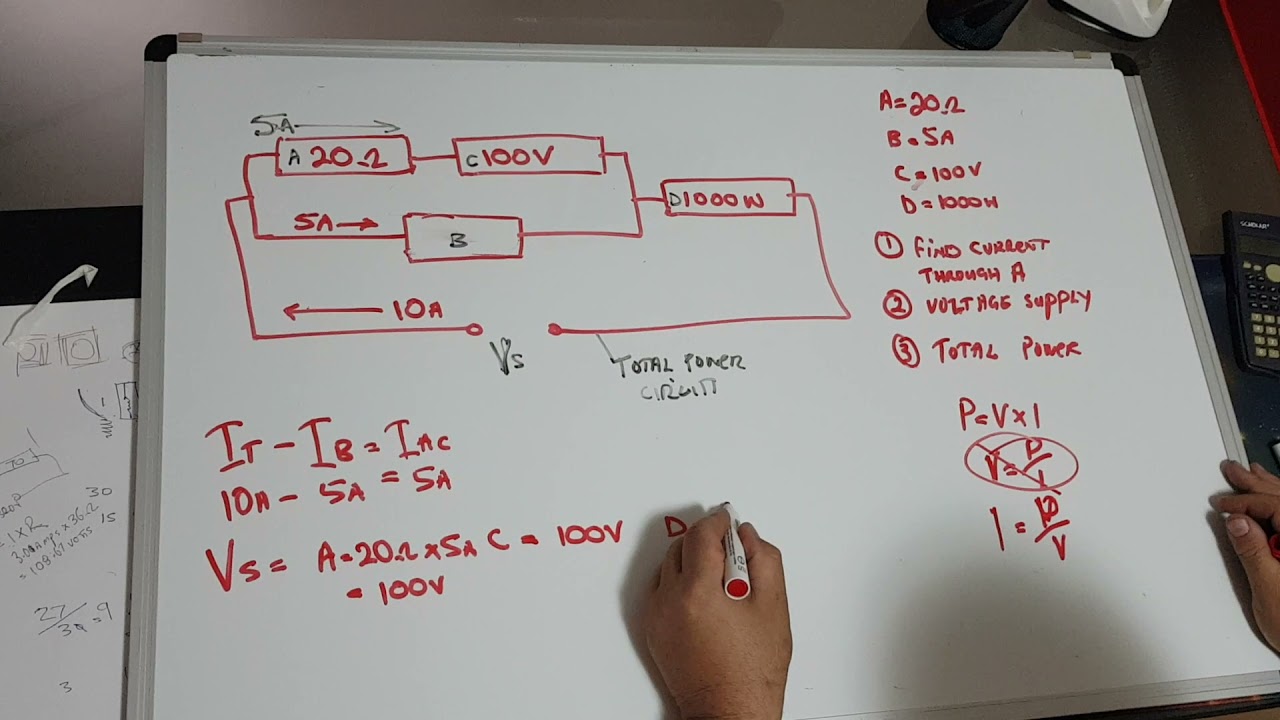 5A
A 20Ω
C 100V
D 1000W
5A
B
10A
Vs
TOTAL POWER
CIRCUIT
A=20Ω
B=5A
C=100V
D=1000W
① FIND CURRENT
THROUGH A
② VOLTAGE SUPPLY
③ TOTAL POWER
P=V×I
V=P/I
I=P/V
IT - IB = IAC
10A - 5A = 5A
Vs= A=20Ω×5A C = 100V D
= 100V
SCHOLAR
30
15
= 108.67 VOLTS
27/39=9
3